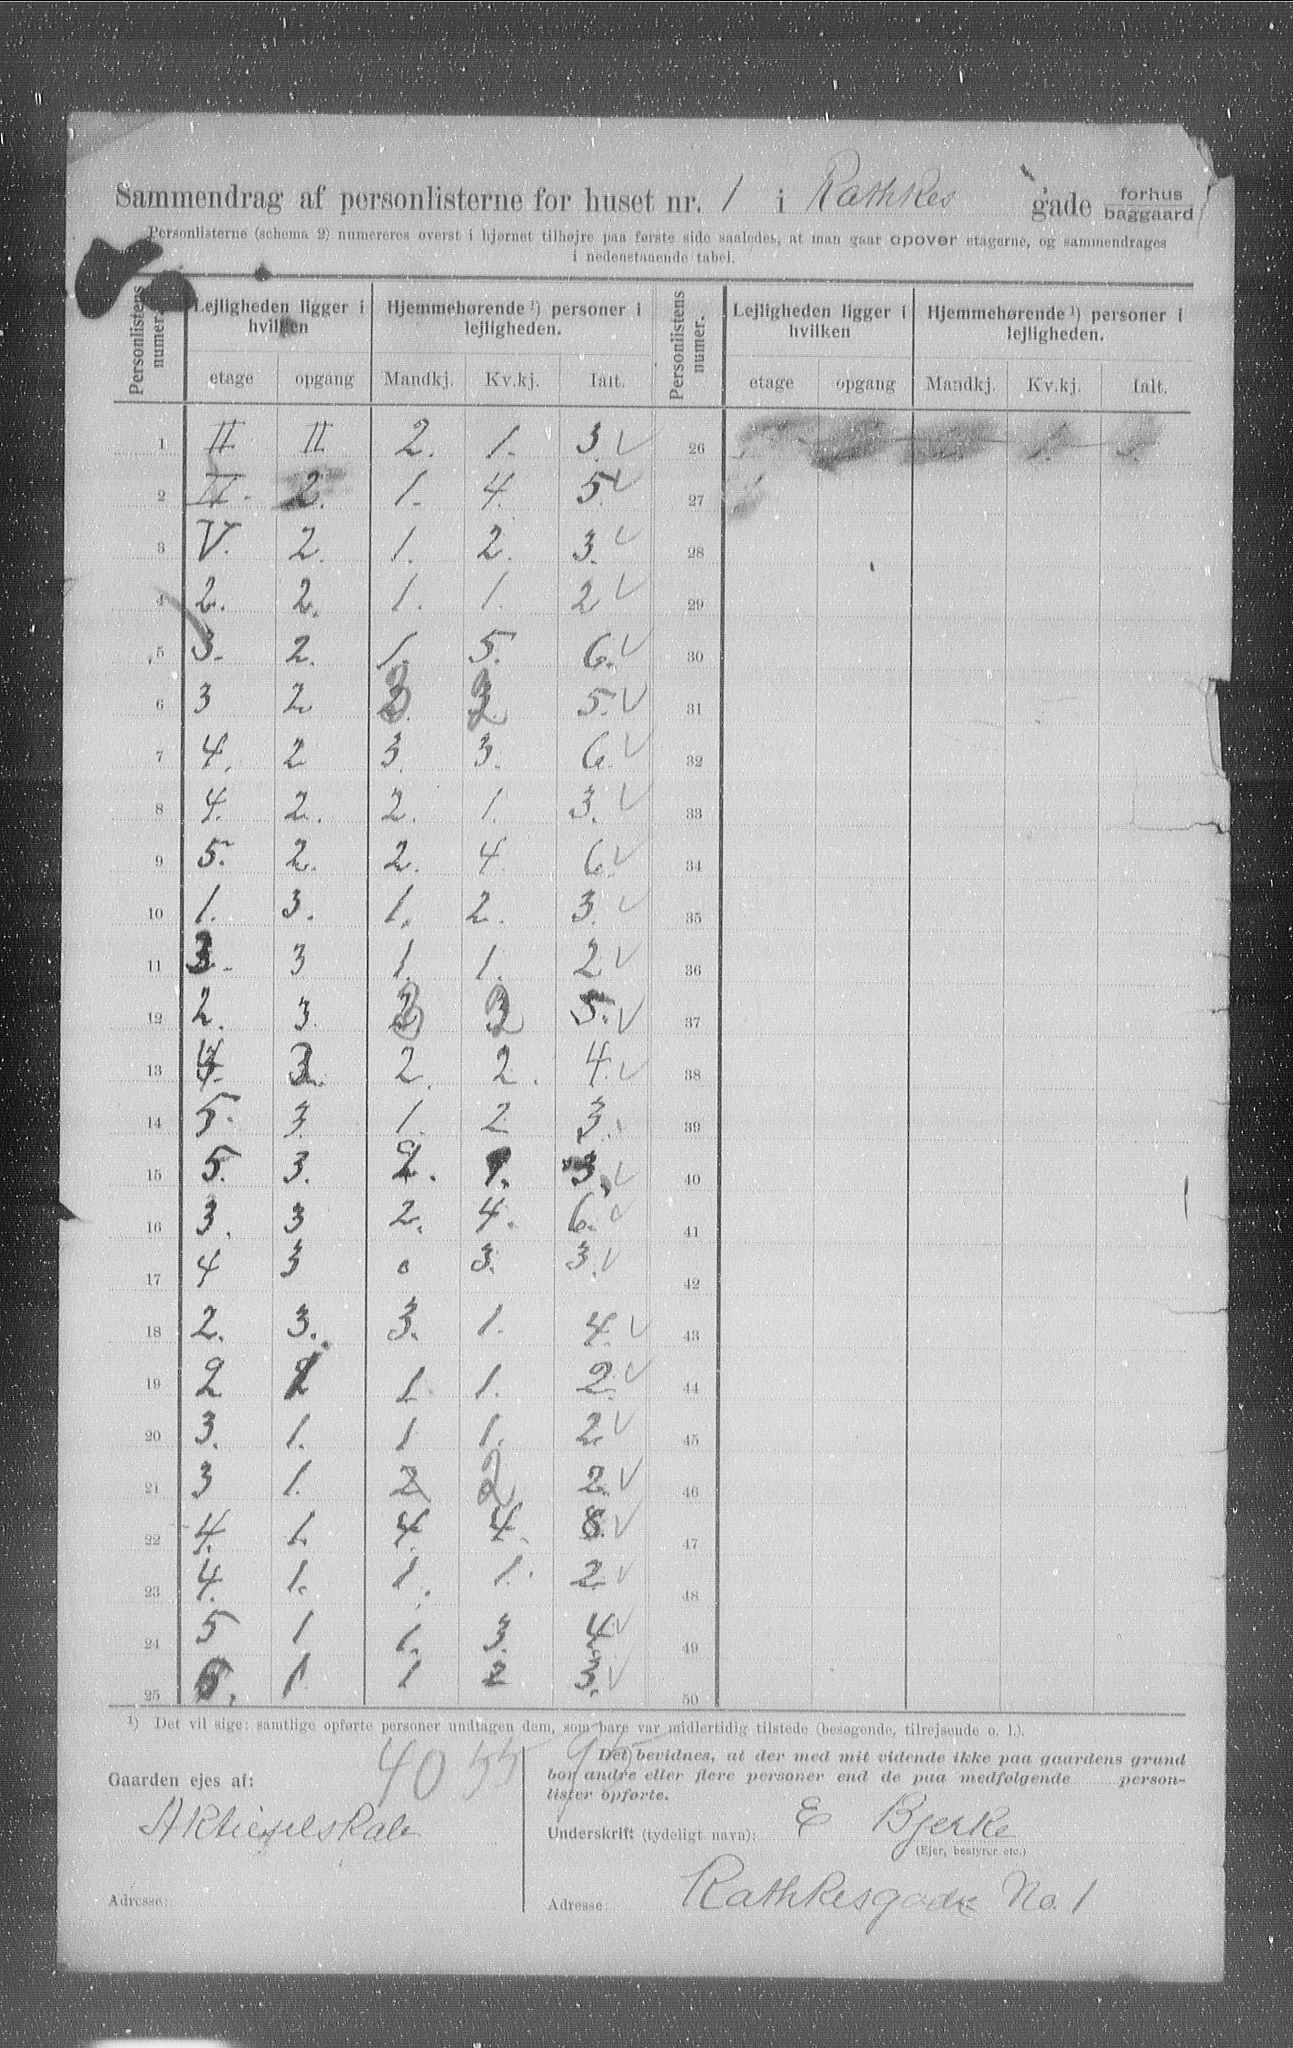 Sammendrag af personlisterne for huset nr. 1 i Rathkes gade forhus baggaard
Personlisterne (schema 2) numereres øverst i hjørnet tilhøjre paa første side saaledes, at man gaar opover etagerne, og sammendrages
i nedenstaaende tabel.
Personlistens numer. Lejligheden ligger i hvilken Hjemmehørende ¹) personer i lejligheden. Personlistens numer. Lejligheden ligger i hvilken Hjemmehørende ¹) personer i lejligheden.
etage opgang Mandkj. Kv.kj. Ialt. etage opgang Mandkj. Kv.kj. Ialt.
1 II II 2. 1. 3. 26
2 2. 1. 4. 5. 27
3 V. 2. 1. 2. 3. 28
4 2. 2. 1. 1. 2 29
5 3. 2. 1. 5. 6. 30
6 3 2 3 2 5. 31
7 4. 2 3. 3. 6. 32
8 4. 2. 2. 1. 3. 33
9 5. 2. 2. 4. 6. 34
10 1. 3. 1. 2. 3. 35
11 3. 3 1. 1. 2 36
12 2. 3. 3 2 5. 37
13 4. 3. 2. 2. 4. 38
14 5. 3. 1. 2 3. 39
15 5. 3. 2. 1. 3. 40
16 3. 3 2. 4. 6. 41
17 4 3 0 3. 3. 42
18 2. 3. 3. 1. 4. 43
19 2 1 1. 2. 44
20 3. 1. 1 1. 2. 45
21 3 1. 2 2. 46
22 4. 1. 4. 4. 8. 47
23 4. 1. 1. 1. 2. 48
24 5 1 1. 3. 4. 49
25 5. 1. 1 2 3. 50
¹) Det vil sige: samtlige opførte personer undtagen dem, som bare var midlertidig tilstede (besøgende, tilrejsende o. l.).
40 55 95
Det bevidnes, at der med mit vidende ikke paa gaardens grund
bor andre eller flere personer end de paa medfølgende person-
lister opførte.
Gaarden ejes af:
Aktieselskab
Underskrift (tydeligt navn): E Bjerke
(Ejer, bestyrer etc.)
Adresse:
Adresse: Rathkesgade No. 1